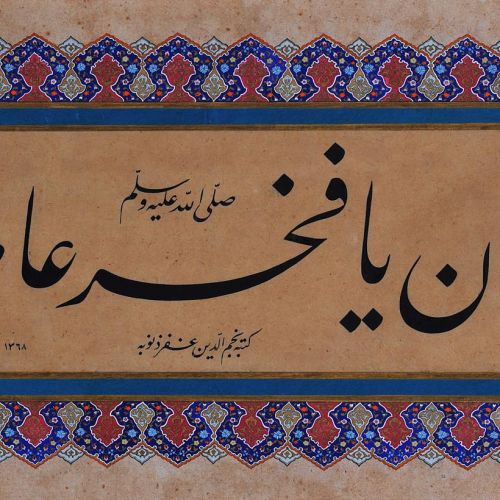 صلى الله عليه وسلم
ن يا فخر عا
كتبه نجم الدين غفر ذنوبه
١٣٦٨